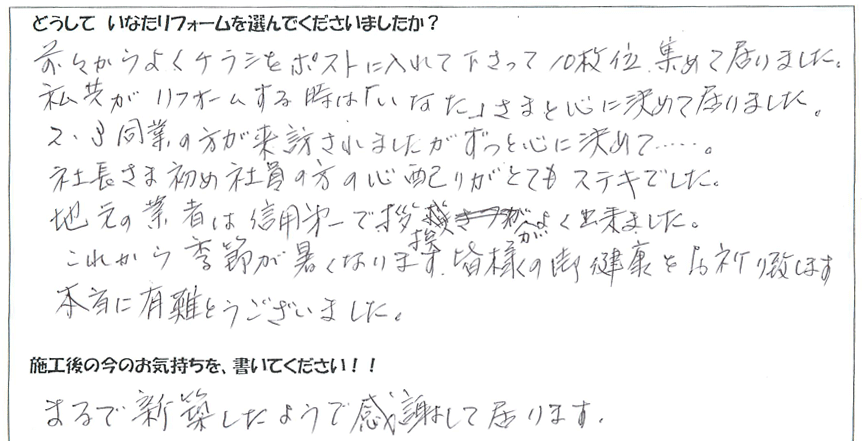 どうして いなたリフォームを選んでくださいましたか？
前々からよくチラシをポストに入れて下さって10枚位、集めて居りました。
私共がリフォームする時は「いなた」さまと心に決めて居りました。
2・3同業の方が来訪されましたがずっと心に決めて……。
社長さま初め社員の方の心配りがとてもステキでした。
地元の業者は信用第一で挨拶がよく出来ました。
これから季節が暑くなります、皆様の御健康をお祈り致します
本当に有難とうございました。
施工後の今のお気持ちを、書いてください！！
まるで新築したようで感謝して居ります。